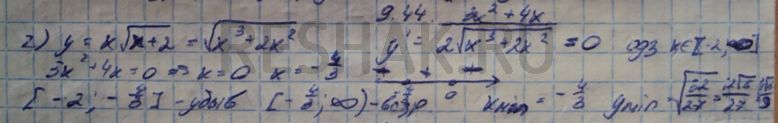 9.44.
2) y = x√x+2 = √x³+2x² y' = 3x²+4x / 2√x³+2x² = 0 одз x∈[-2,∞)
3x²+4x=0 ⇒ x=0 x=-4/3 + - +
[-2; -4/3] - убыв [-4/3; ∞) - возр xmin = -4/3 ymin = -√32/27 =
RESHAK.RU